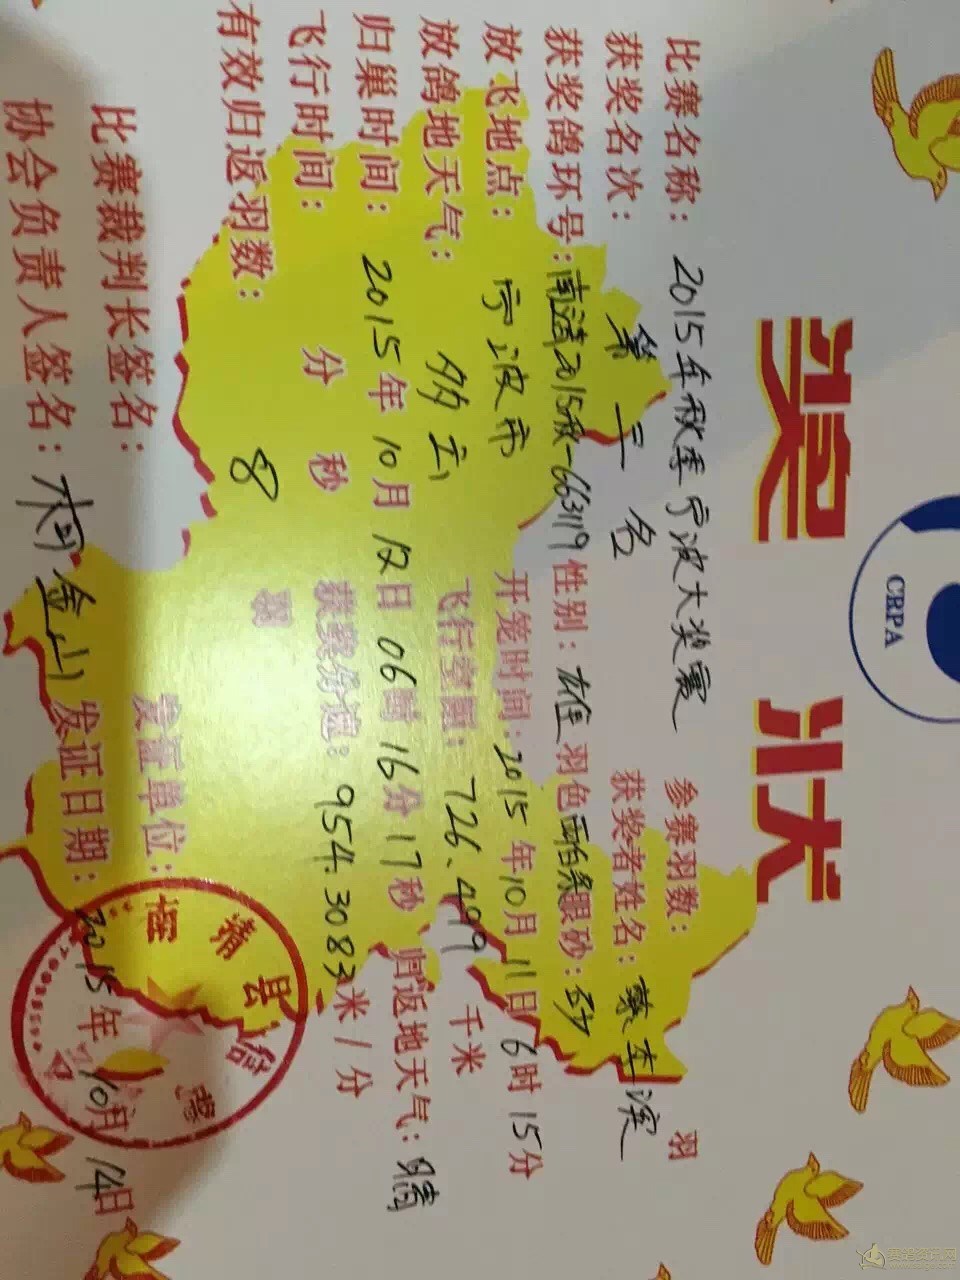 CRPA
奖 状
比赛名称：2015年秋季宁波大奖赛 参赛羽数： 羽
获奖名次：第二名 获奖者姓名：
获奖鸽环号：南靖2015秋-663119 性别：雄 羽色 眼砂：砂
放飞地点：宁波市 开笼时间：2015年10月11日6时15分
放鸽地天气：多云 飞行空距：726.499 千米
归巢时间：2015年10月12日06时16分17秒 归返地天气：晴
飞行时间： 分 秒 获奖分速：954.3083米/分
有效归返羽数：8 羽
比赛裁判长签名： 发证单位：
协会负责人签名： 金山 发证日期：2015年10月14日
南靖县信鸽